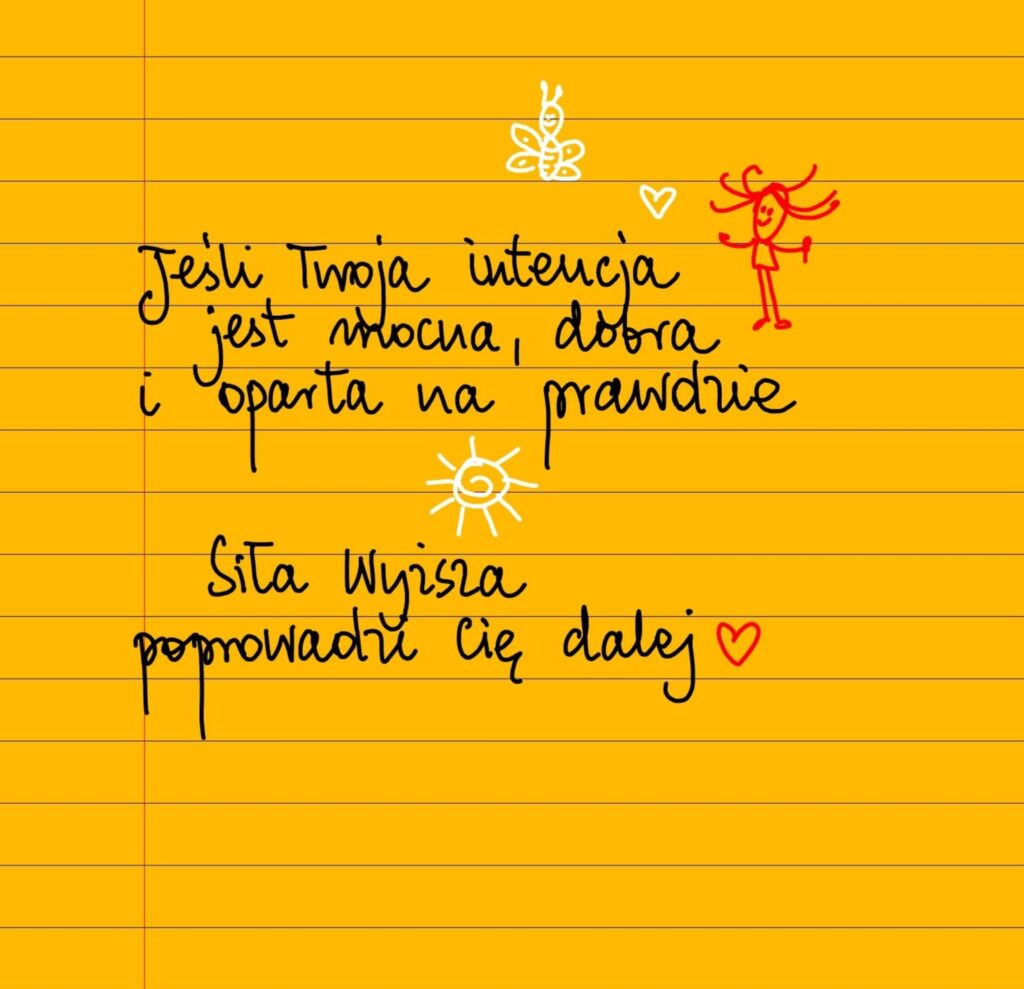 Jeśli Twoja intencja
jest mocna, dobra
i oparta na prawdzie
Siła Wyższa
poprowadzi Cię dalej